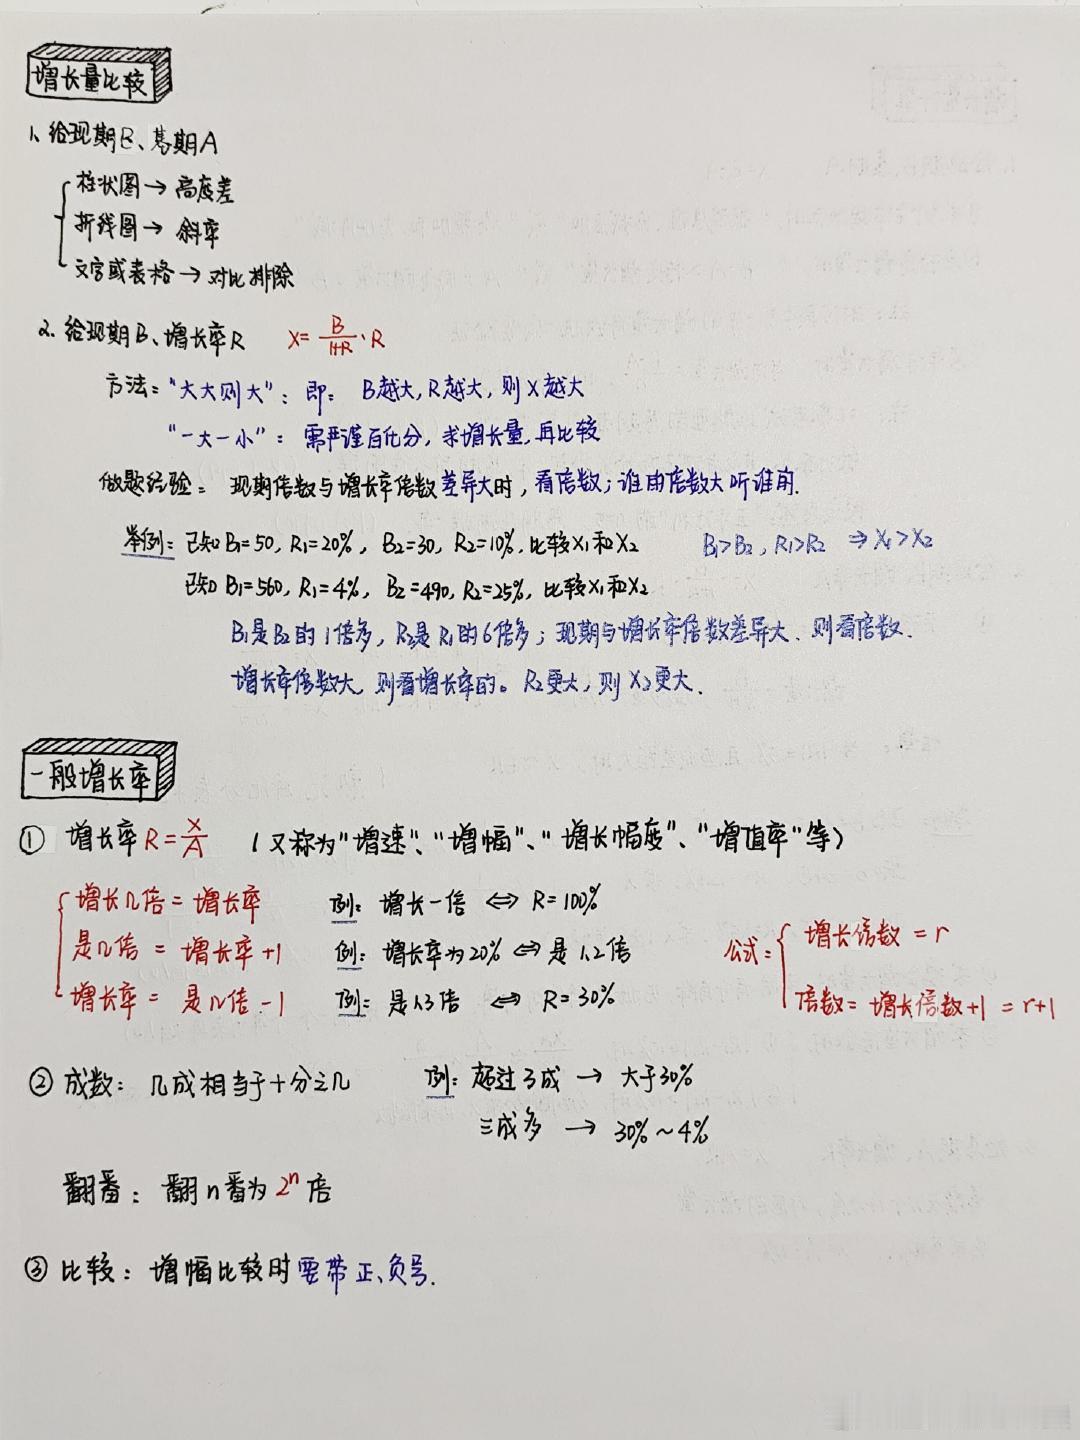 增长量比较
1、给现期B、基期A
柱状图→高度差
折线图→斜率
文字或表格→对比排除
2. 给现期B、增长率R X=B/(1+R)·R
方法:"大大则大":即:B越大,R越大,则X越大
"一大一小":需严谨百化分,求增长量,再比较
做题经验:现期倍数与增长率倍数差异大时,看倍数;谁的倍数大听谁的.
举例:已知B₁=50, R₁=20%, B₂=30, R₂=10%, 比较X₁和X₂ B₁>B₂, R₁>R₂ ⇒X₁>X₂
已知B₁=560, R₁=4%, B₂=490, R₂=25%, 比较X₁和X₂
B₁是B₂的1倍多,R₂是R₁的6倍多;现期与增长率倍数差异大.则看倍数.
增长率倍数大,则看增长率的。R₂更大,则X₂更大.
一般增长率
① 增长率R=X/A (又称为"增速"、"增幅"、"增长幅度"、"增值率"等)
增长几倍=增长率 例:增长一倍⇔R=100%
是几倍=增长率+1 例:增长率为20%⇔是1.2倍
增长率=是几倍-1 例:是1.3倍⇔R=30%
公式:增长倍数=r
倍数=增长倍数+1=r+1
② 成数:几成相当于十分之几 例:超过3成→大于30%
三成多→30%~4%
翻番:翻n番为2ⁿ倍
③ 比较:增幅比较时要带正、负号.